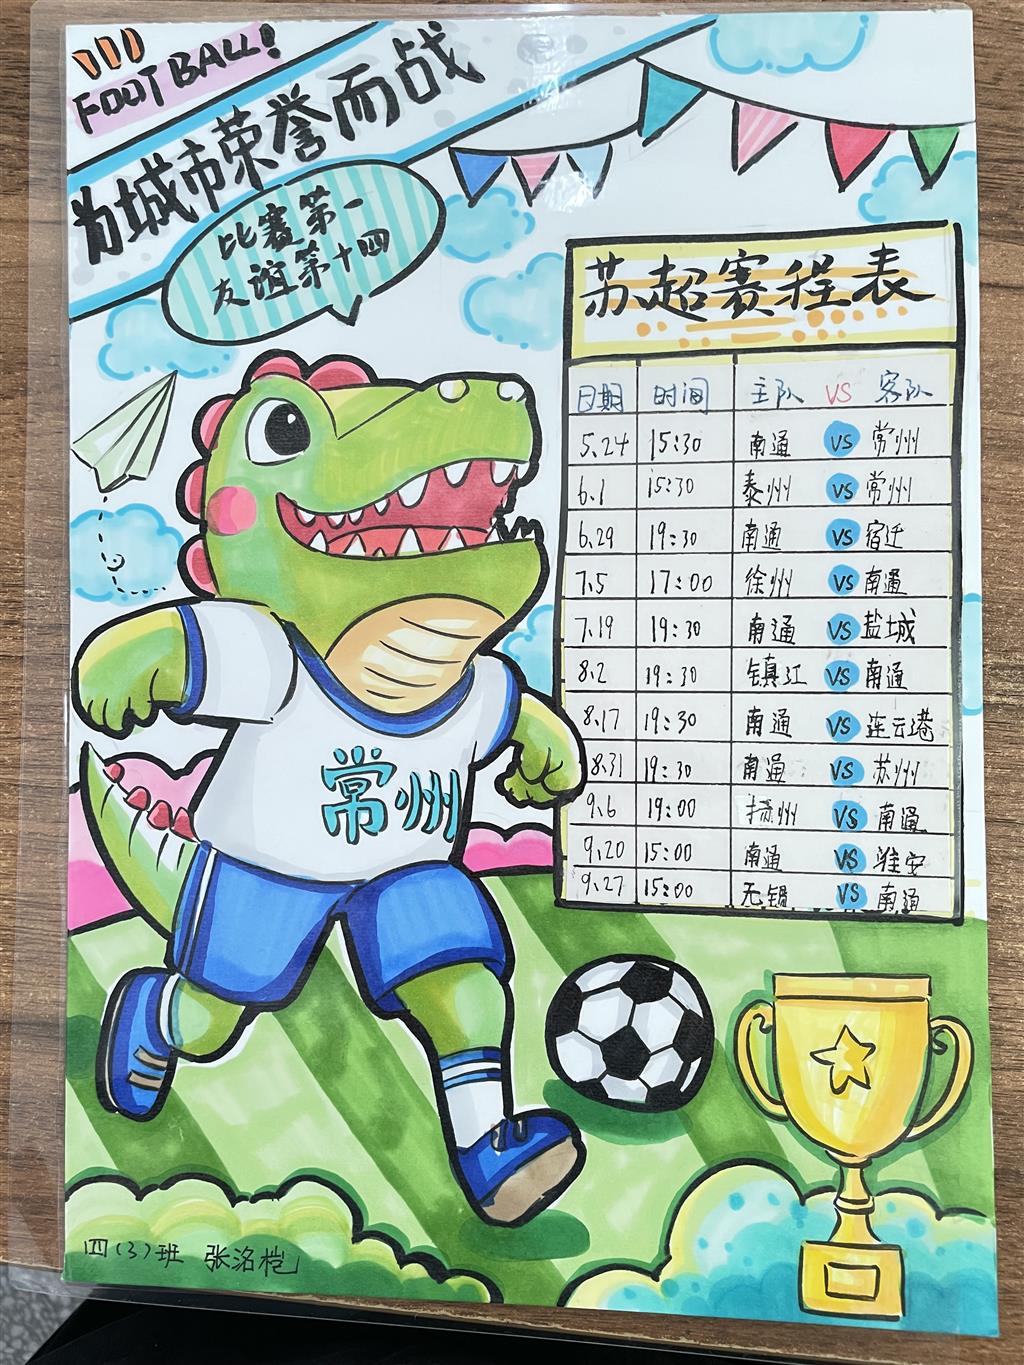 FOOTBALL!
为城市荣誉而战
比赛第一
友谊第十四
苏超赛程表
日期 时间 主队 VS 客队
5.24 15:30 南通 VS 常州
6.1 15:30 泰州 VS 常州
6.29 19:30 南通 VS 宿迁
7.5 17:00 徐州 VS 南通
7.19 19:30 南通 VS 盐城
8.2 19:30 镇江 VS 南通
8.17 19:30 南通 VS 连云港
8.31 19:30 南通 VS 苏州
9.6 19:00 扬州 VS 南通
9.20 15:00 南通 VS 淮安
9.27 15:00 无锡 VS 南通
常州
四(3)班 张洺桤